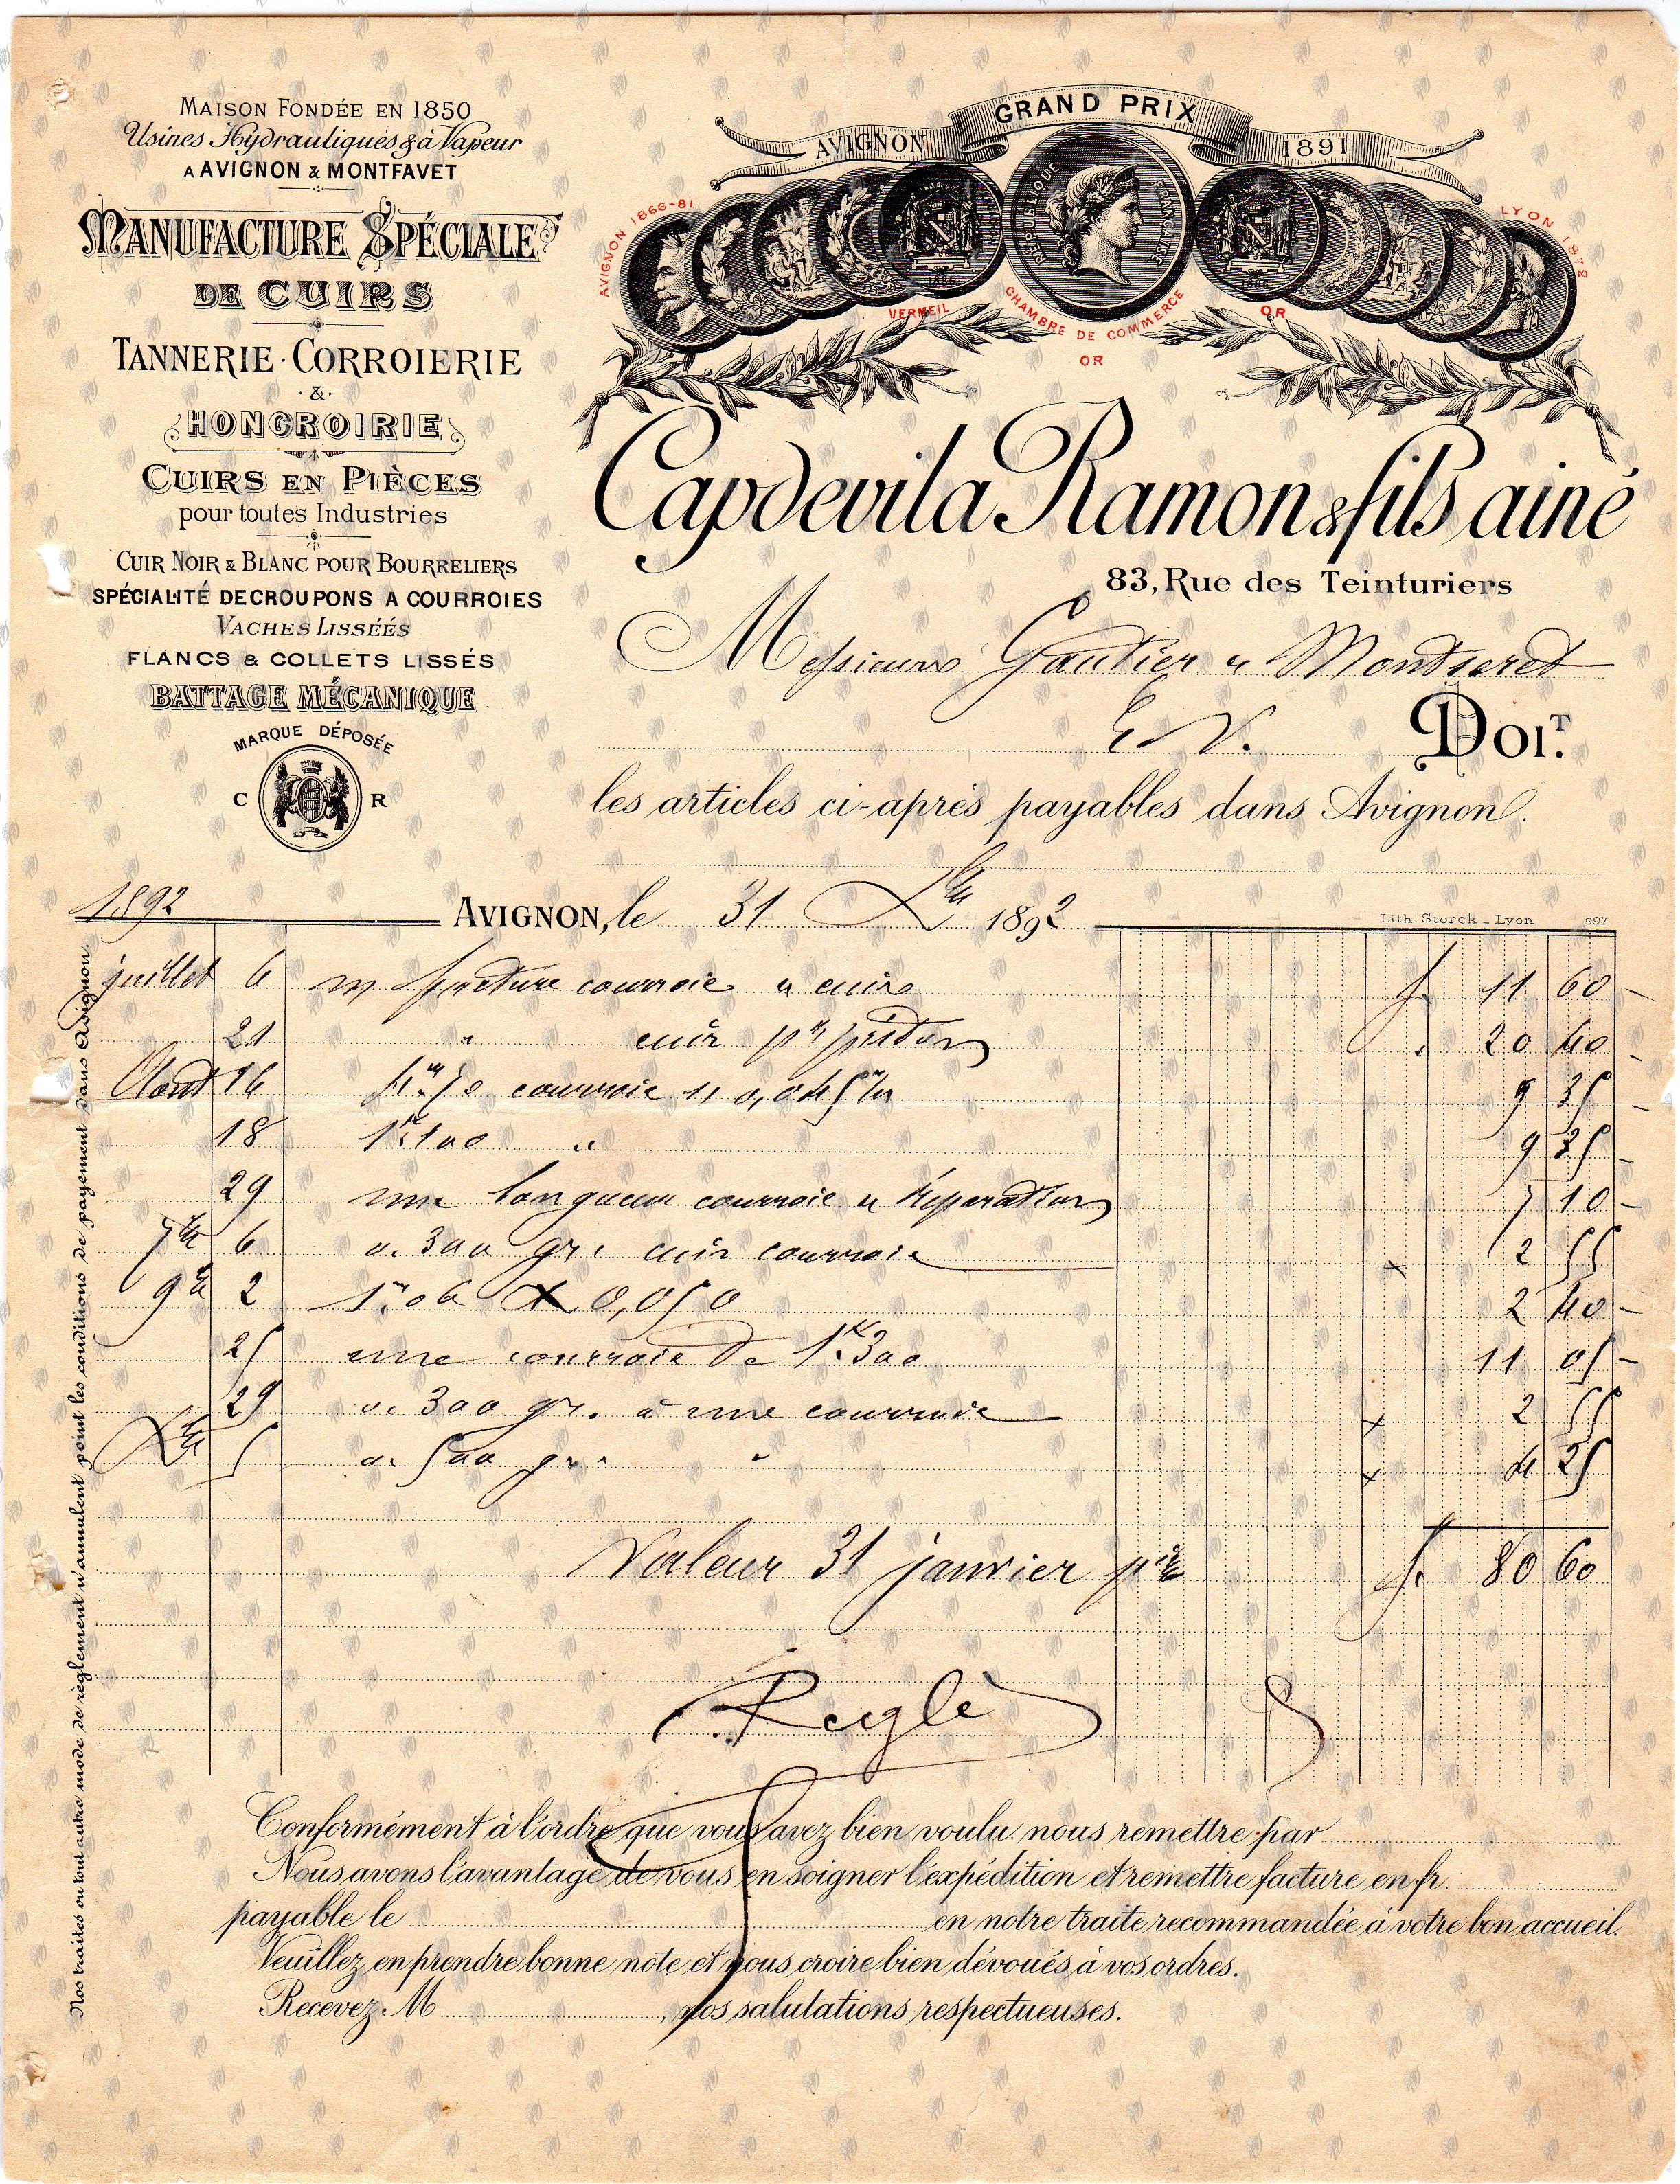 MAISON FONDÉE EN 1850
Usines Hydrauliques & à Vapeur
A AVIGNON & MONTFAVET
MANUFACTURE SPÉCIALE
DE CUIRS
TANNERIE · CORROIERIE
·&·
HONGROIRIE
CUIRS EN PIÈCES
pour toutes Industries
CUIR NOIR & BLANC POUR BOURRELIERS
SPÉCIALITÉ DE CROUPONS A COURROIES
VACHES LISSÉÉS
FLANCS & COLLETS LISSÉS
BATTAGE MÉCANIQUE
MARQUE DÉPOSÉE
C R
GRAND PRIX
AVIGNON 1891
AVIGNON 1866-81
LYON 1872
RÉPUBLIQUE FRANÇAISE
1886
1886
VERMEIL
CHAMBRE DE COMMERCE
OR
OR
Capdevila Ramon & fils ainé
83, Rue des Teinturiers
Messieurs Gautier & Montseret
E. V. DOIT.
les articles ci-après payables dans Avignon.
1892
AVIGNON, le 31 Xbre 1892
Lith. Storck _ Lyon 997
juillet 6 facture courroie & cuirs f. 11 60
21 " cuir pr piston 20 40
Aout 16 courroie 9 35
18 1k 100 " 9 35
29 une longueur courroie & réparation 7 10
7bre 6 a. 300 gr. cuir courroie 2 55
9bre 2 1m.06 X 0,050 2 40
25 une courroie de 1k.300 11 05
29 a. 300 gr. à une courroie 2 55
Xbre 5 a. 500 gr. " 4 25
Valeur 31 janvier f. 80 60
Reglé
Conformément à l'ordre que vous avez bien voulu nous remettre par
Nous avons l'avantage de vous en soigner l'expédition et remettre facture en fr.
payable le en notre traite recommandée à votre bon accueil.
Veuillez en prendre bonne note et nous croire bien dévoués à vos ordres.
Recevez M , nos salutations respectueuses.
Nos traites ou tout autre mode de règlement n'annulent point les conditions de payement dans Avignon.